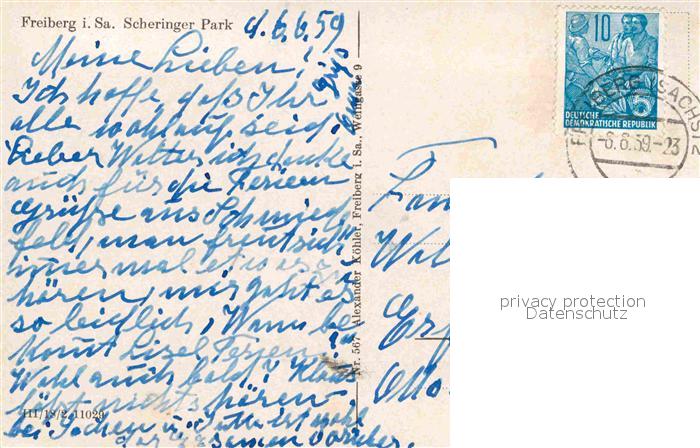 Freiberg i. Sa. Scheringer Park
d. 6.6.59
Meine Lieben!
Ich hoffe, daß Ihr
alle wohlauf seid.
Lieber Walter ich danke
auch für die Ferien
Grüße aus Schmied
feld, man freut sich
immer mal etwas zu
hören, mir geht es
so leidlich, Wann be
komt Lisel Ferien?
Wohl auch bald! Klaus
läßt nichts hören.
bei Jochen u. Jutta ist wohl
das Examen vorüber.
III/18/2, 11029
Nr. 567 Alexander Köhler, Freiberg i. Sa., Weingasse 9
10
DEUTSCHE
DEMOKRATISCHE REPUBLIK
FREIBERG (SACHS) 2
-6.6.59.-23
Fam
Wal
Erf
Otto
privacy protection
Datenschutz